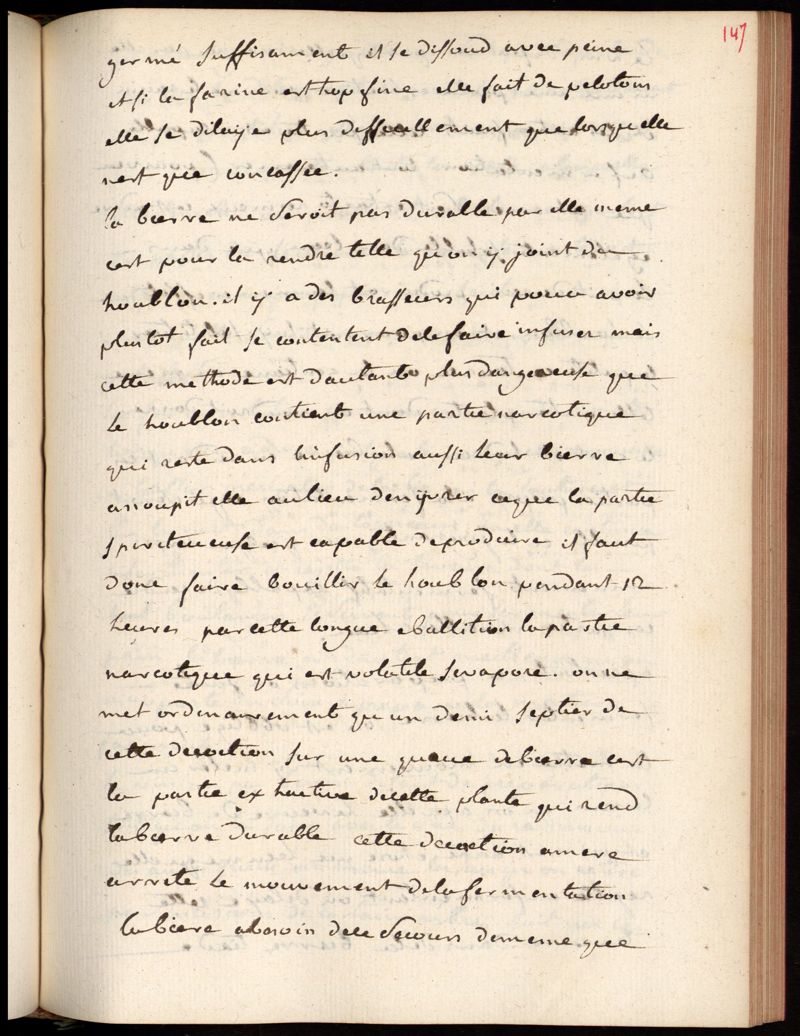 147
germé suffisament il se dissoud avec peine
et si la farine est trop fine elle fait de pelotons
elle se dilaÿe plus difficullement que lorsquelle
nest que concassee.
la bierre ne seroit pas durable par elle meme
cest pour la rendre telle quon ij joint du
houblon. il ij a des brasseurs qui pour avoir
plustot fait se contentent de le faire infuser mais
cette methode est dautant plus dangereuse que
le houblon contient une partie narcotique
qui reste dans linfusion aussi leur bierre
assoupit elle aulieu denijvrer ce que la partie
spiritueuse est capable de produire il faut
donc faire bouillir le houblon pendant 12
heures par cette longue eballition la partie
narcotique qui est volatile sevapore. on ne
met ordinairement qu un demi septier de
cette decoction sur une queue de bierre cest
la partie extractive de cette plante qui rend
la bierre durable cette decoction amere
arrete le mouvement de la fermentation
la biere a besoin de ce secours de meme que